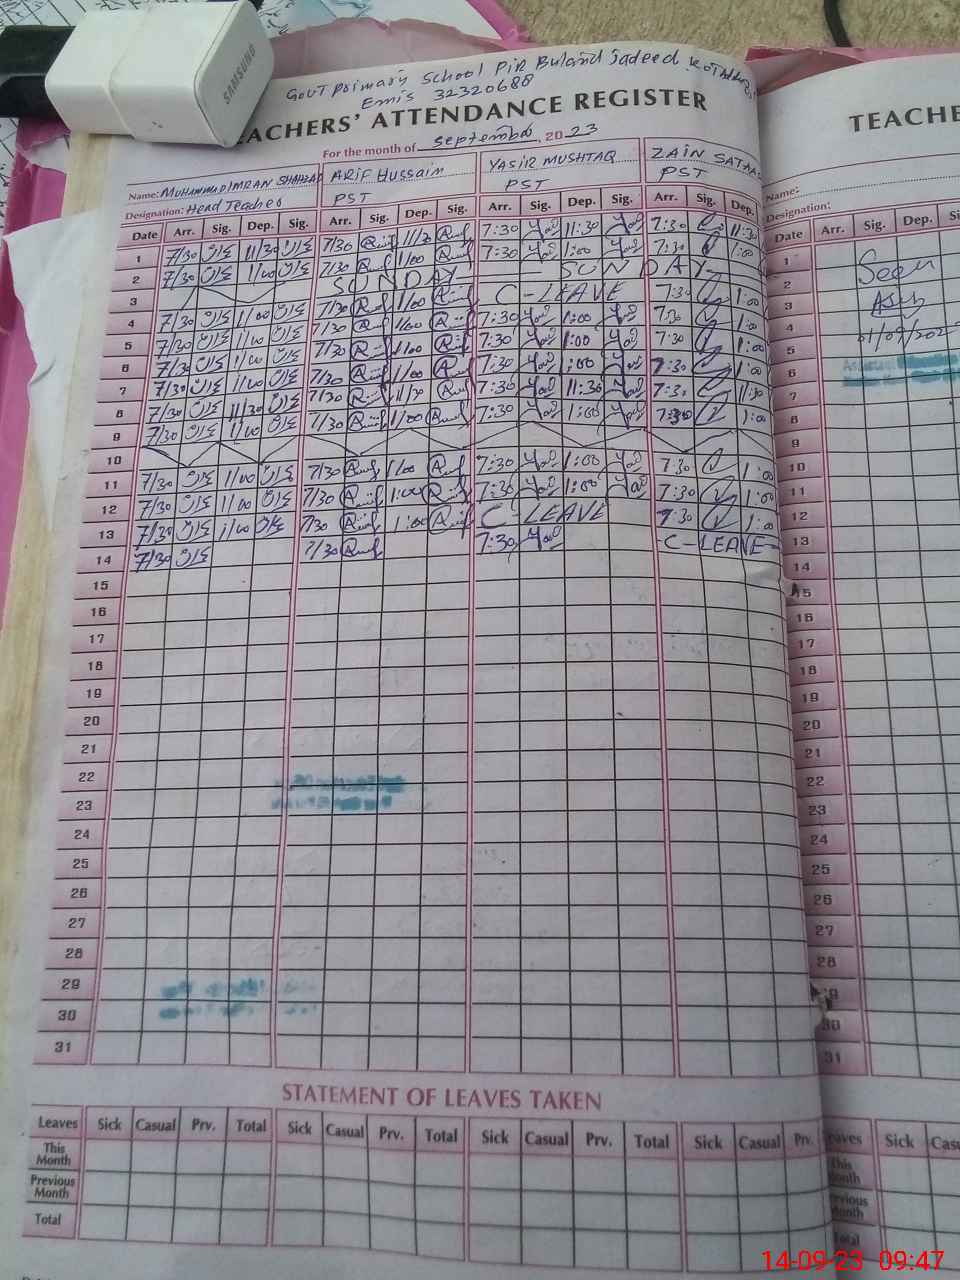 SAMSUNG
GOVT Primary School Pir Buland Jadeed
Emis 32320688
TEACHERS' ATTENDANCE REGISTER
For the month of September, 2023
Name: MUHAMMAD IMRAN SHAHZAD ARIF HUSSAIN YASIR MUSHTAQ ZAIN SATAAR
Designation: Head Teacher PST PST PST
Date Arr. Sig. Dep. Sig. Arr. Sig. Dep. Sig. Arr. Sig. Dep. Sig. Arr. Sig. Dep.
1 7/30 11/30 7/30 11/30 7:30 11:30 7:30 11:30
2 7/30 1/00 7/30 1/00 7:30 1:00 7:30 1:00
3 SUNDAY SUNDAY
4 7/30 1/00 7/30 1/00 C-LEAVE 7:30 1:00
5 7/30 1/00 7/30 1/00 7:30 1:00 7:30 1:00
6 7/30 1/00 7/30 1/00 7:30 1:00 7:30 1:00
7 7/30 1/00 7/30 1/00 7:30 1:00 7:30 1:00
8 7/30 11/30 7/30 11/30 7:30 11:30 7:30 11:30
9 7/30 1/00 7/30 1/00 7:30 1:00 7:30 1:00
10
11 7/30 1/00 7/30 1/00 7:30 1:00 7:30 1:00
12 7/30 1/00 7/30 1:00 7:30 1:00 7:30 1:00
13 7/30 1/00 7/30 1:00 C-LEAVE 7:30 1:00
14 7/30 7/30 7:30 C-LEAVE
15
16
17
18
19
20
21
22
23
24
25
26
27
28
29
30
31
STATEMENT OF LEAVES TAKEN
Leaves Sick Casual Prv. Total Sick Casual Prv. Total Sick Casual Prv. Total Sick Casual Prv.
This Month
Previous Month
Total
TEACHE
Name:
Designation:
Date Arr. Sig. Dep.
1
2
3
4
5
6
7
8
9
10
11
12
13
14
15
16
17
18
19
20
21
22
23
24
25
26
27
28
29
30
31
Seen
Leaves Sick Cas
This Month
Previous Month
Total
14-09-23 09:47